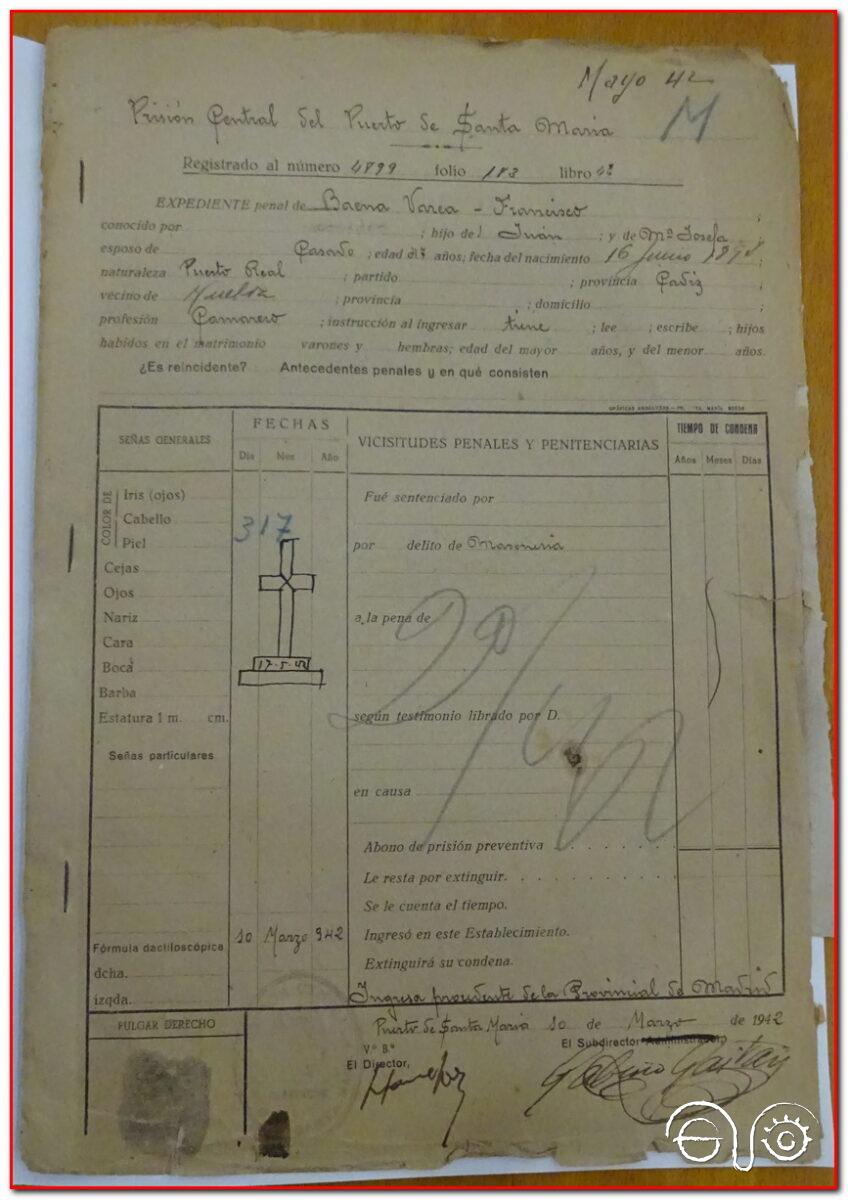 Mayo 42
Prisión Central del Puerto de Santa Maria M
Registrado al número 4899 folio 183 libro 4º
EXPEDIENTE penal de Baena Varea - Francisco ;
conocido por ; hijo de Juán ; y de Mª Josefa ;
esposo de Casado ; edad años; fecha del nacimiento 16 Junio ;
naturaleza Puerto Real ; partido ; provincia Cadiz ;
vecino de Huelva ; provincia ; domicilio ;
profesión Camarero ; instrucción al ingresar tiene ; lee ; escribe ; hijos
habidos en el matrimonio varones y hembras; edad del mayor años, y del menor años.
¿Es reincidente? Antecedentes penales y en qué consisten
SEÑAS GENERALES
FECHAS
Día Mes Año
VICISITUDES PENALES Y PENITENCIARIAS
TIEMPO DE CONDENA
Años Meses Días
COLOR DE
Iris (ojos)
Cabello
Piel
Cejas
Ojos
Nariz
Cara
Boca
Barba
Estatura 1 m. cm.
Señas particulares
317
17-5-42
Fué sentenciado por
por delito de Masoneria
a la pena de
según testimonio librado por D.
en causa
Abono de prisión preventiva
Le resta por extinguir.
Se le cuenta el tiempo.
Fórmula dactiloscópica 10 Marzo 942 Ingresó en este Establecimiento.
dcha. Extinguirá su condena.
izqda. Ingresa procedente de la Provincial de Madrid
PULGAR DERECHO
Puerto de Santa Maria 10 de Marzo de 1942
V.º B.º El Subdirector Administrador
El Director,